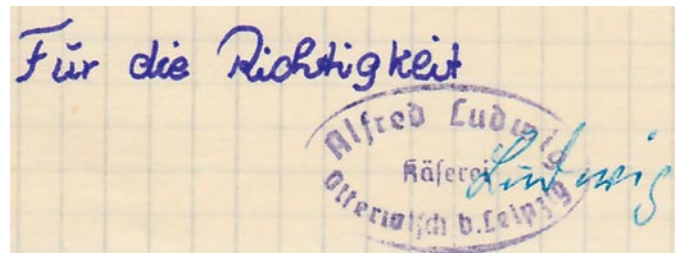 Für die Richtigkeit
Alfred Ludwig
Käserei
Otterwisch b. Leipzig
Ludwig